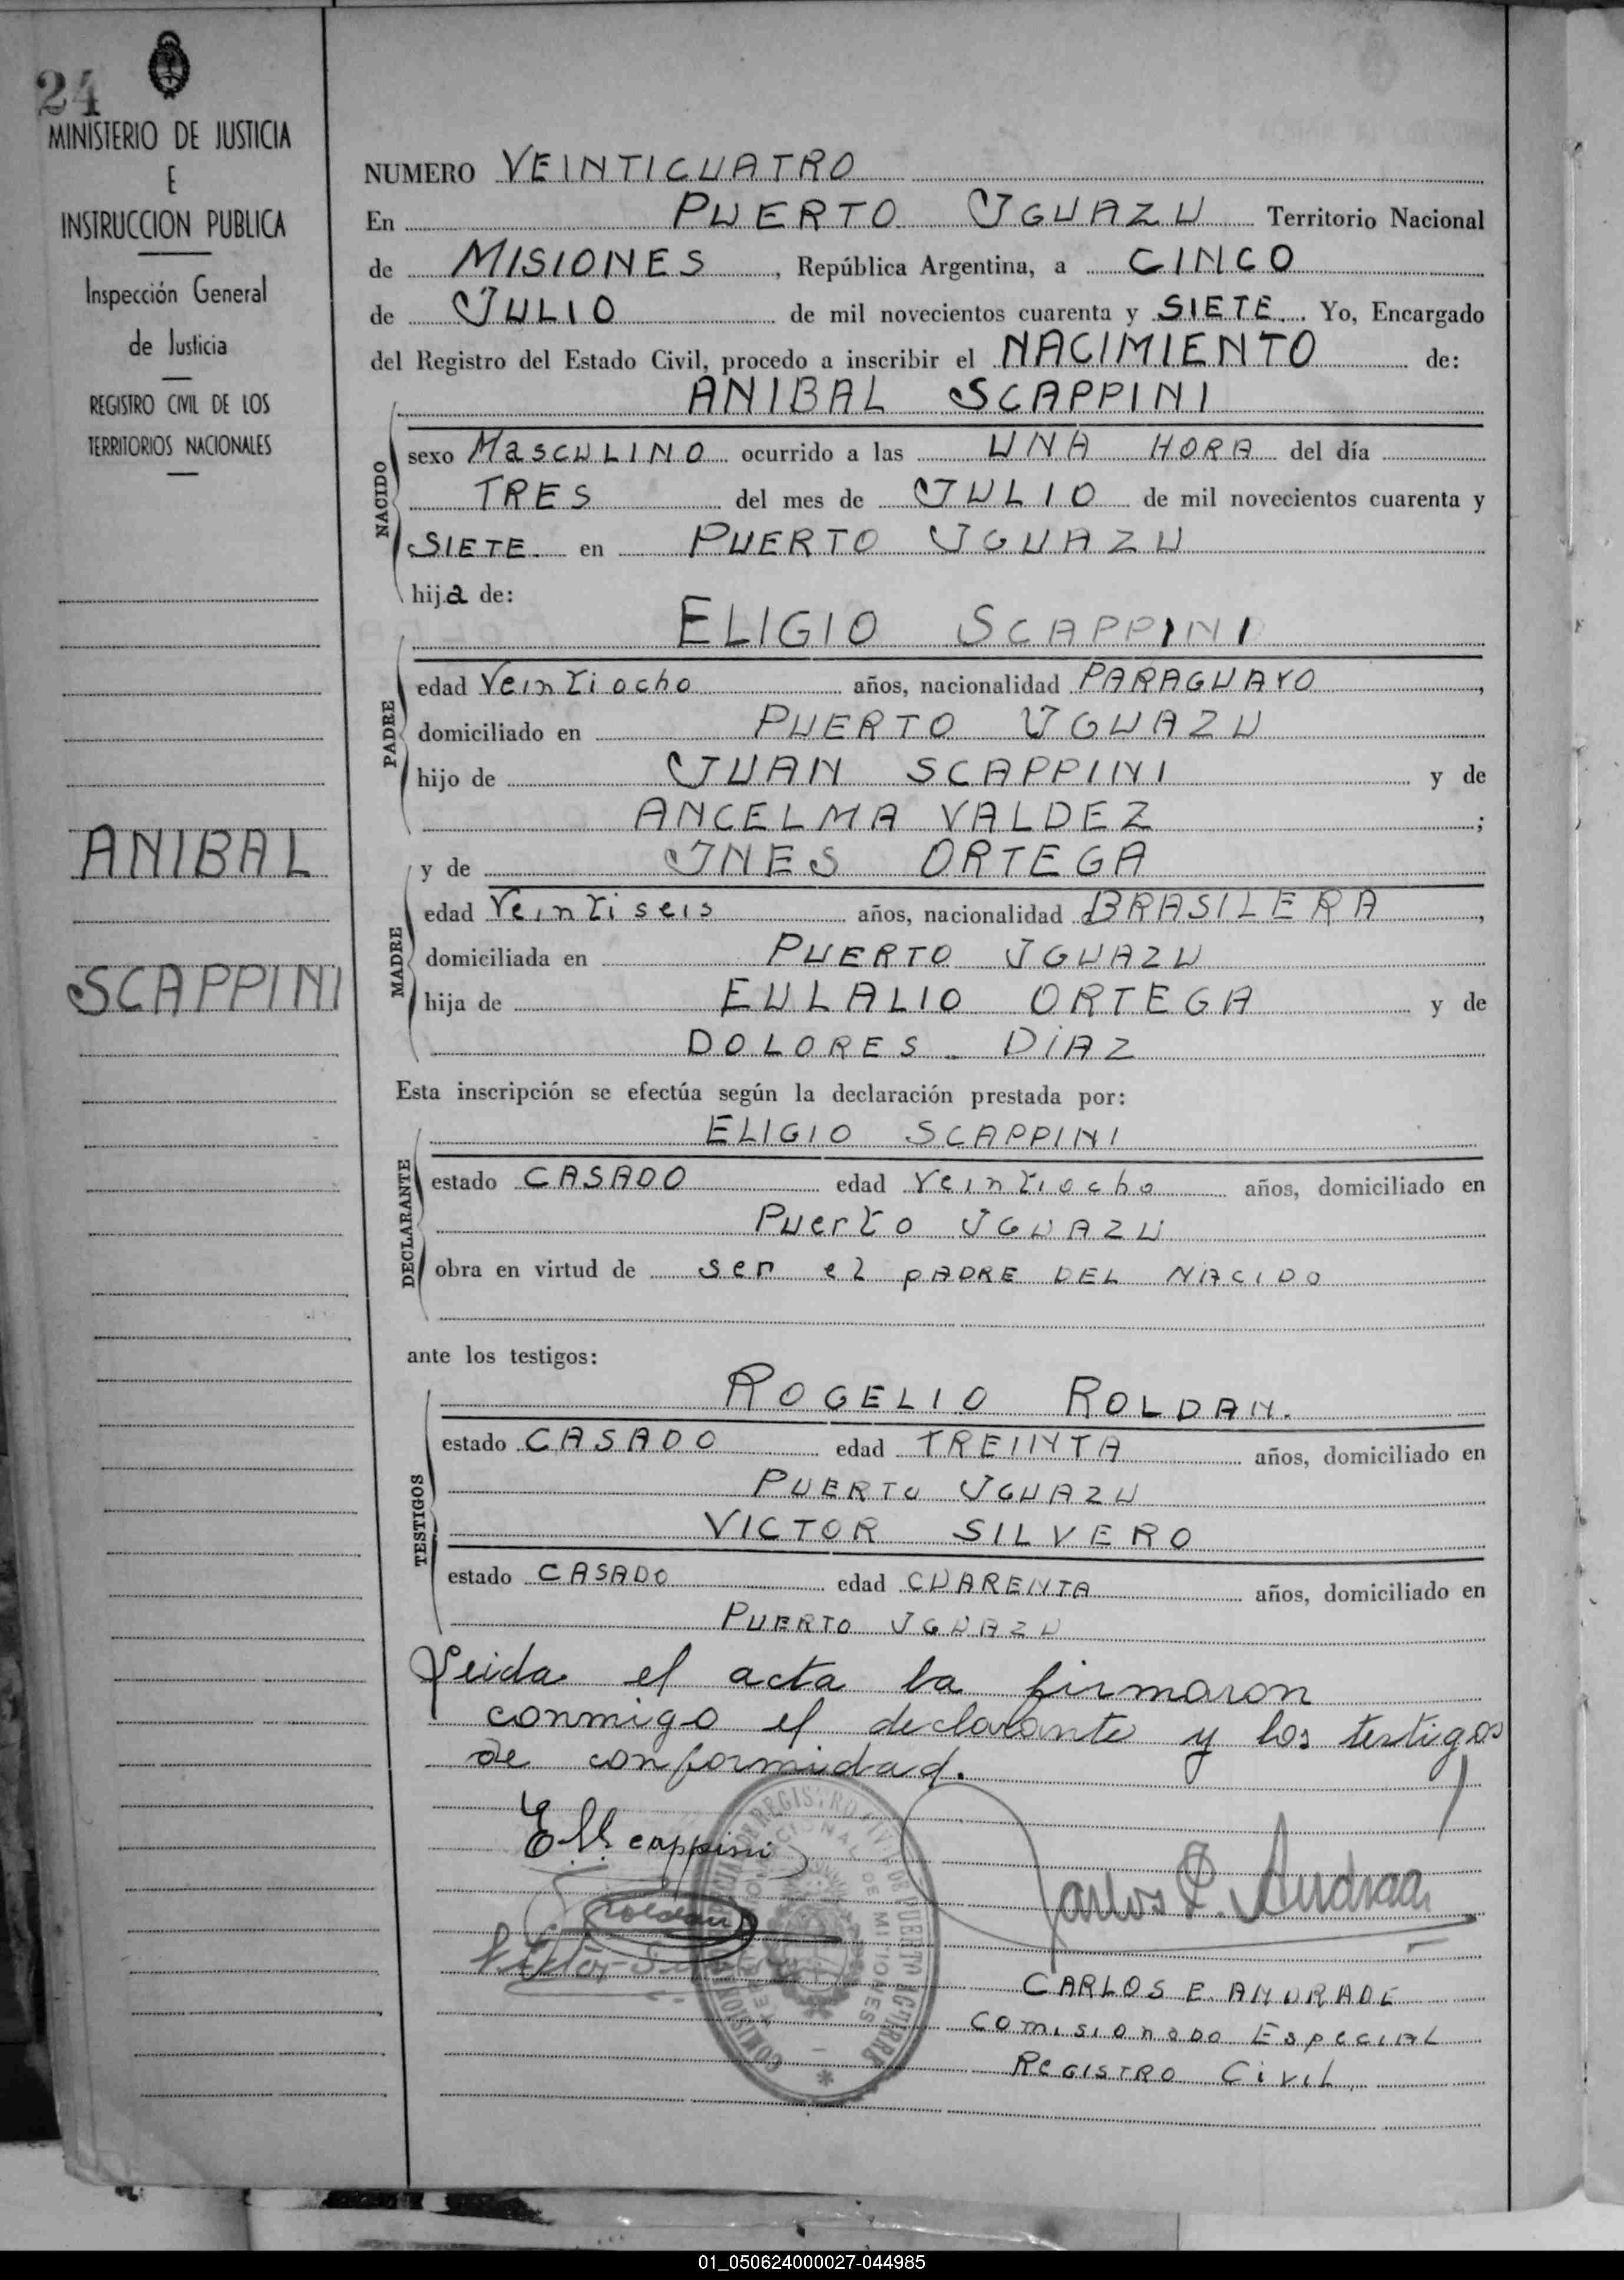 24
MINISTERIO DE JUSTICIA
E
INSTRUCCION PUBLICA
Inspección General
de Justicia
REGISTRO CIVIL DE LOS
TERRITORIOS NACIONALES
ANIBAL
SCAPPINI
NUMERO VEINTICUATRO
En PUERTO IGUAZU Territorio Nacional
de MISIONES, República Argentina, a CINCO
de JULIO de mil novecientos cuarenta y SIETE. Yo, Encargado
del Registro del Estado Civil, procedo a inscribir el NACIMIENTO de:
ANIBAL SCAPPINI
NACIDO
sexo MASCULINO ocurrido a las UNA HORA del día
TRES del mes de JULIO de mil novecientos cuarenta y
SIETE. en PUERTO IGUAZU
hija de:
ELIGIO SCAPPINI
PADRE
edad Veintiocho años, nacionalidad PARAGUAYO,
domiciliado en PUERTO IGUAZU
hijo de JUAN SCAPPINI y de
ANCELMA VALDEZ;
y de INES ORTEGA
MADRE
edad Veintiseis años, nacionalidad BRASILERA,
domiciliada en PUERTO IGUAZU
hija de EULALIO ORTEGA y de
DOLORES DIAZ
Esta inscripción se efectúa según la declaración prestada por:
ELIGIO SCAPPINI
DECLARANTE
estado CASADO edad Veintiocho años, domiciliado en
Puerto IGUAZU
obra en virtud de ser el PADRE DEL NACIDO
ante los testigos:
ROGELIO ROLDAN.
TESTIGOS
estado CASADO edad TREINTA años, domiciliado en
PUERTO IGUAZU
VICTOR SILVERO
estado CASADO edad CUARENTA años, domiciliado en
PUERTO IGUAZU
Leida el acta la firmaron
conmigo el declarante y los testigos
de conformidad.
E. Scappini
Roldan
Victor
Carlos E. Andrade
CARLOS E. ANDRADE
Comisionado Especial
Registro Civil
01_050624000027-044985